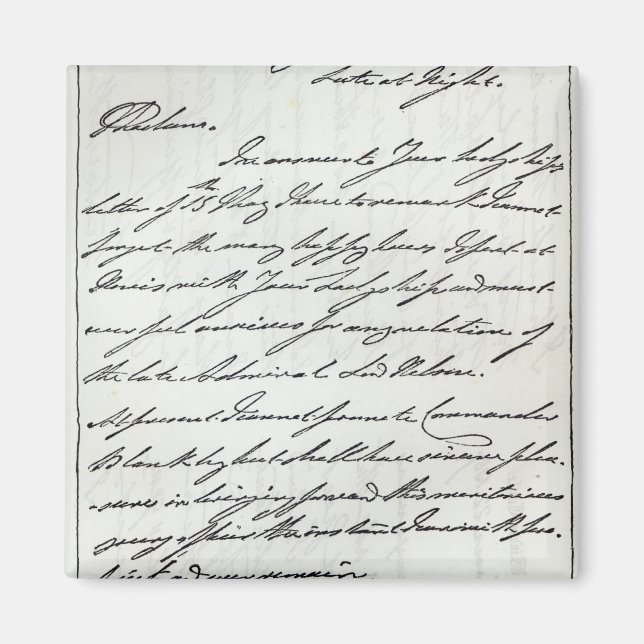 Late at Night.
Madam.
In answer to Your Ladyship's
letter of 15th May I have to remark I cannot
forget the many happy hours I spent at
with Your Ladyship and must
ever feel anxious for any relation of
the late Admiral Lord Nelson.
At present I cannot promote Commander
Blankley but shall have sincere plea-
-sures in bringing forward this meritorious
young officer the instant I can with pro-
and ever remain